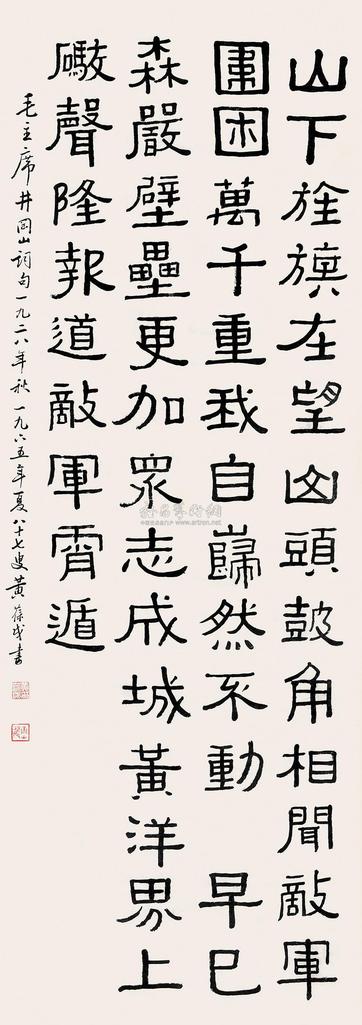 山下旌旗在望山頭鼓角相聞敵軍
圍困萬千重我自巋然不動 早已
森嚴壁壘更加眾志成城黃洋界上
礮聲隆報道敵軍霄遁
毛主席井岡山詞句一九二八年秋 一九六五年夏八十七叟黃葆戉書
www.artron.net